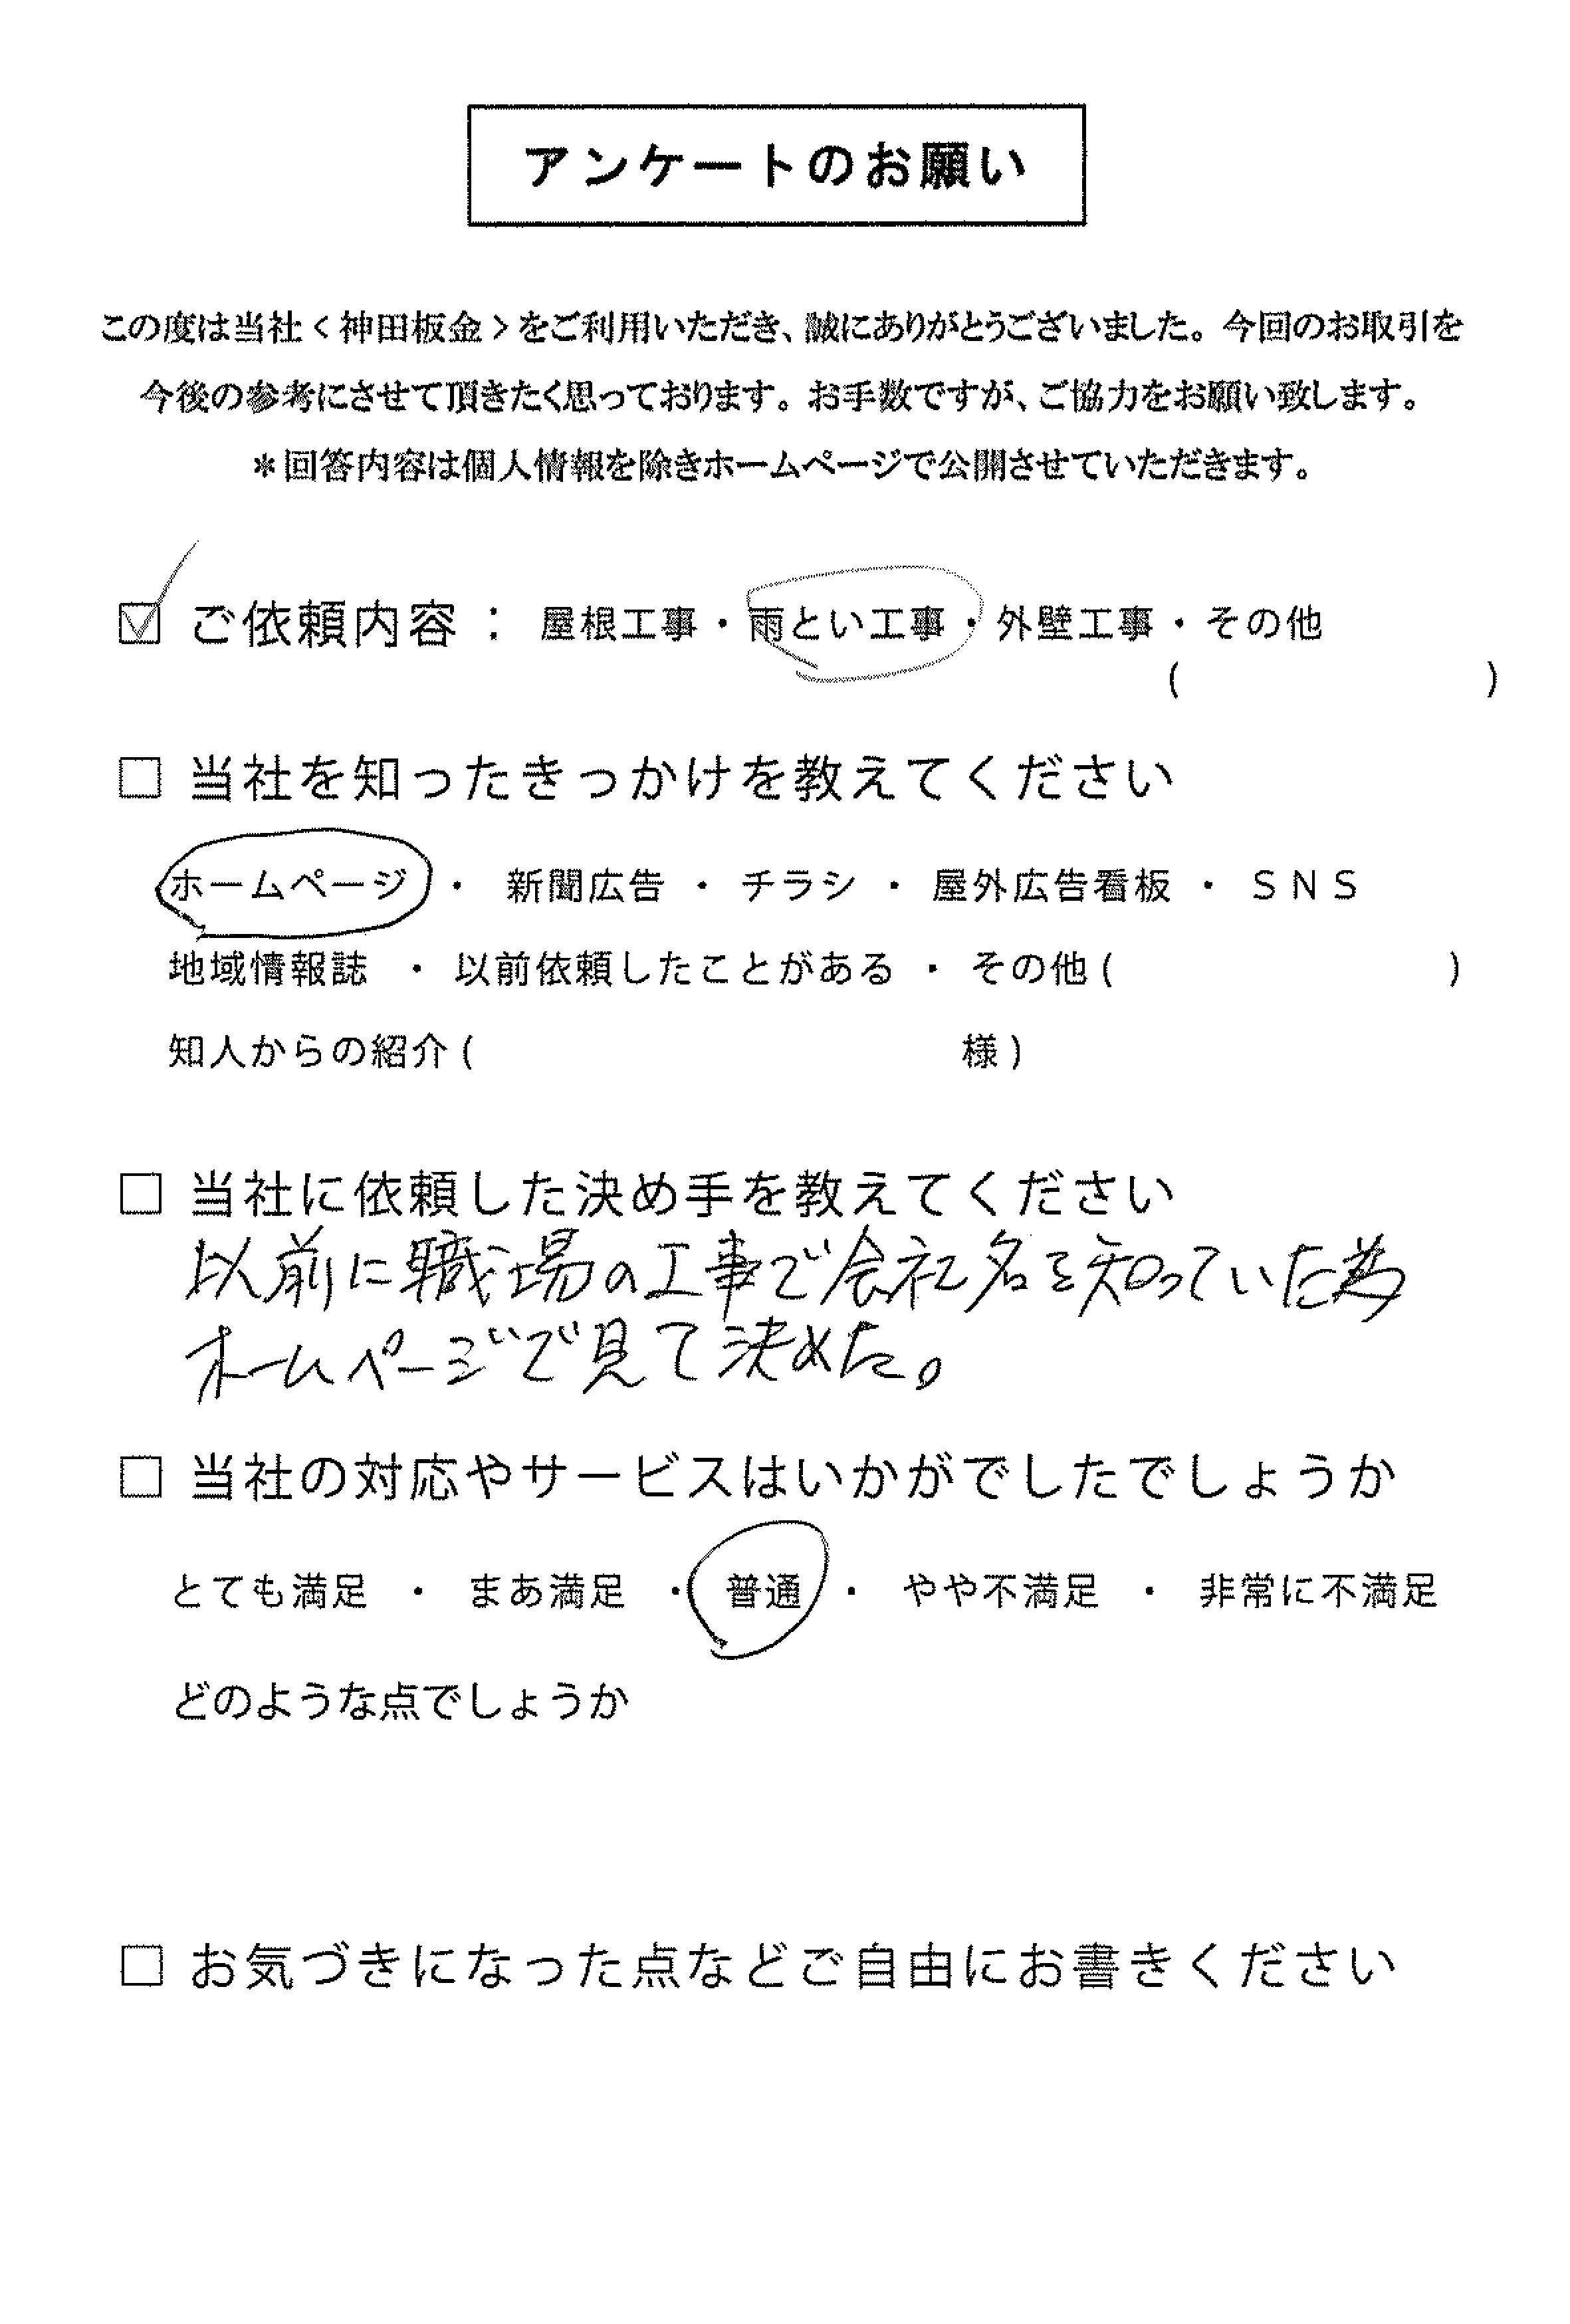 アンケートのお願い
この度は当社＜神田板金＞をご利用いただき、誠にありがとうございました。今回のお取引を
今後の参考にさせて頂きたく思っております。お手数ですが、ご協力をお願い致します。
＊回答内容は個人情報を除きホームページで公開させていただきます。
☑ ご依頼内容：屋根工事・雨とい工事・外壁工事・その他
(　　　　　　　)
□ 当社を知ったきっかけを教えてください
ホームページ ・ 新聞広告 ・ チラシ ・ 屋外広告看板 ・ ＳＮＳ
地域情報誌 ・ 以前依頼したことがある ・ その他 (　　　　　　　　)
知人からの紹介 (　　　　　　　　　　　　様 )
□ 当社に依頼した決め手を教えてください
以前に職場の工事で会社名を知っていた為
ホームページで見て決めた。
□ 当社の対応やサービスはいかがでしたでしょうか
とても満足 ・ まあ満足 ・ 普通 ・ やや不満足 ・ 非常に不満足
どのような点でしょうか
□ お気づきになった点などご自由にお書きください